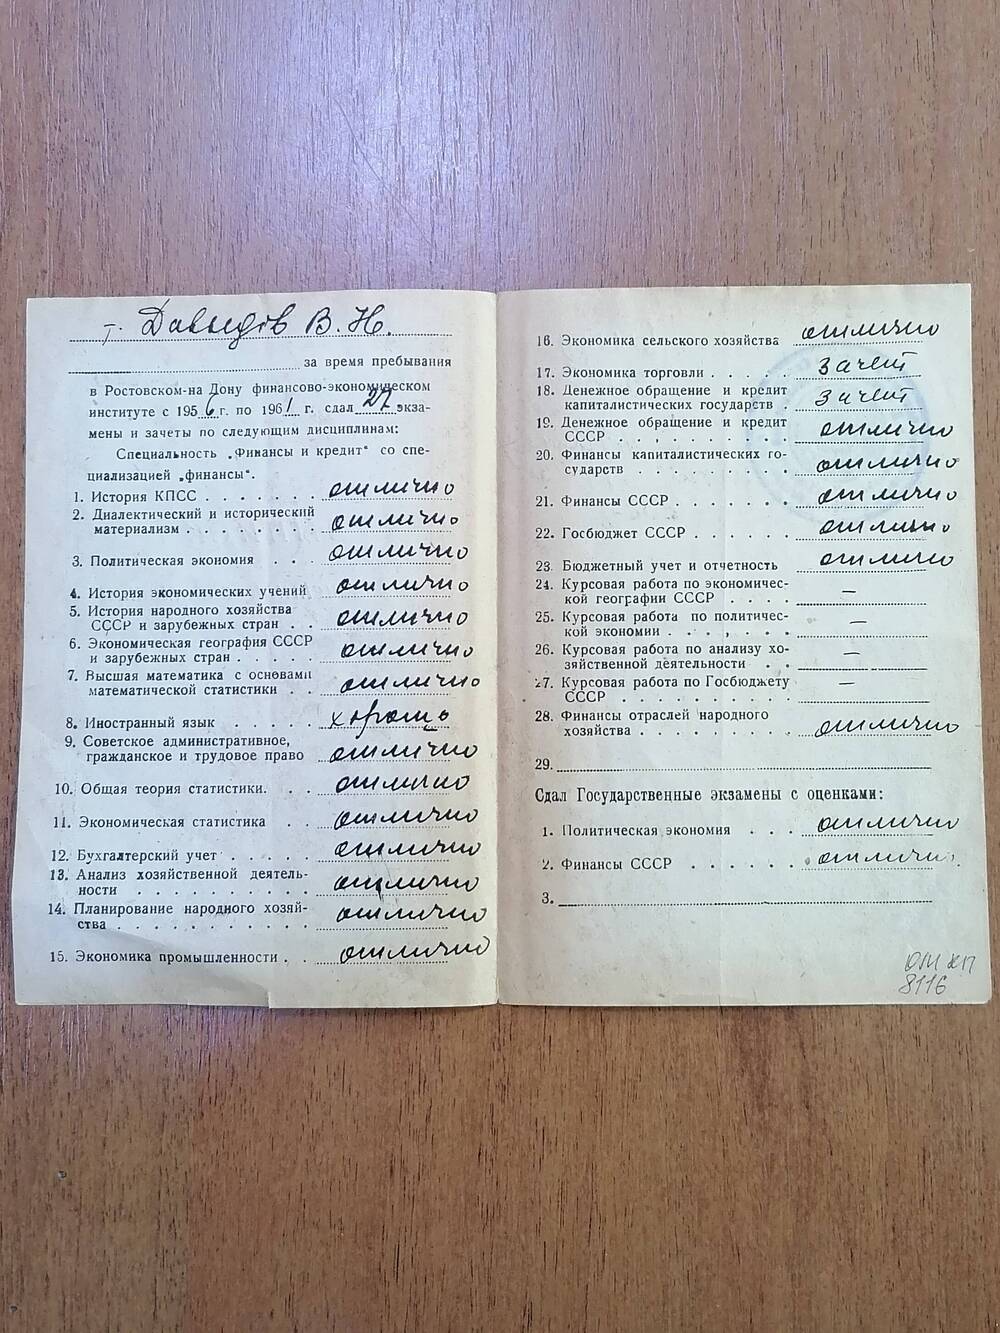 т. Давыдов В. Н.
за время пребывания
в Ростовском-на Дону финансово-экономическом
институте с 1956 г. по 1961 г. сдал 27 экза-
мены и зачеты по следующим дисциплинам:
Специальность „Финансы и кредит“ со спе-
циализацией „финансы“.
1. История КПСС . . . . . . . отлично
2. Диалектический и исторический
материализм . . . . . . . отлично
3. Политическая экономия . . . отлично
4. История экономических учений отлично
5. История народного хозяйства
СССР и зарубежных стран . . отлично
6. Экономическая география СССР
и зарубежных стран . . . . . отлично
7. Высшая математика с основами
математической статистики . . отлично
8. Иностранный язык . . . . . хорошо
9. Советское административное,
гражданское и трудовое право отлично
10. Общая теория статистики. . . отлично
11. Экономическая статистика . . отлично
12. Бухгалтерский учет . . . . . отлично
13. Анализ хозяйственной деятель-
ности . . . . . . . . . . отлично
14. Планирование народного хозяй-
ства . . . . . . . . . . . отлично
15. Экономика промышленности . . отлично
16. Экономика сельского хозяйства отлично
17. Экономика торговли . . . . зачет
18. Денежное обращение и кредит
капиталистических государств . зачет
19. Денежное обращение и кредит
СССР . . . . . . . . . отлично
20. Финансы капиталистических го-
сударств . . . . . . . . отлично
21. Финансы СССР . . . . . . отлично
22. Госбюджет СССР . . . . . . отлично
23. Бюджетный учет и отчетность отлично
24. Курсовая работа по экономичес-
кой географии СССР . . . . —
25. Курсовая работа по политичес-
кой экономии . . . . . . . —
26. Курсовая работа по анализу хо-
зяйственной деятельности . . —
27. Курсовая работа по Госбюджету
СССР . . . . . . . . . . —
28. Финансы отраслей народного
хозяйства . . . . . . . . отлично
29.
Сдал Государственные экзамены с оценками:
1. Политическая экономия . . . отлично
2. Финансы СССР . . . . . . отлично
3.
8116